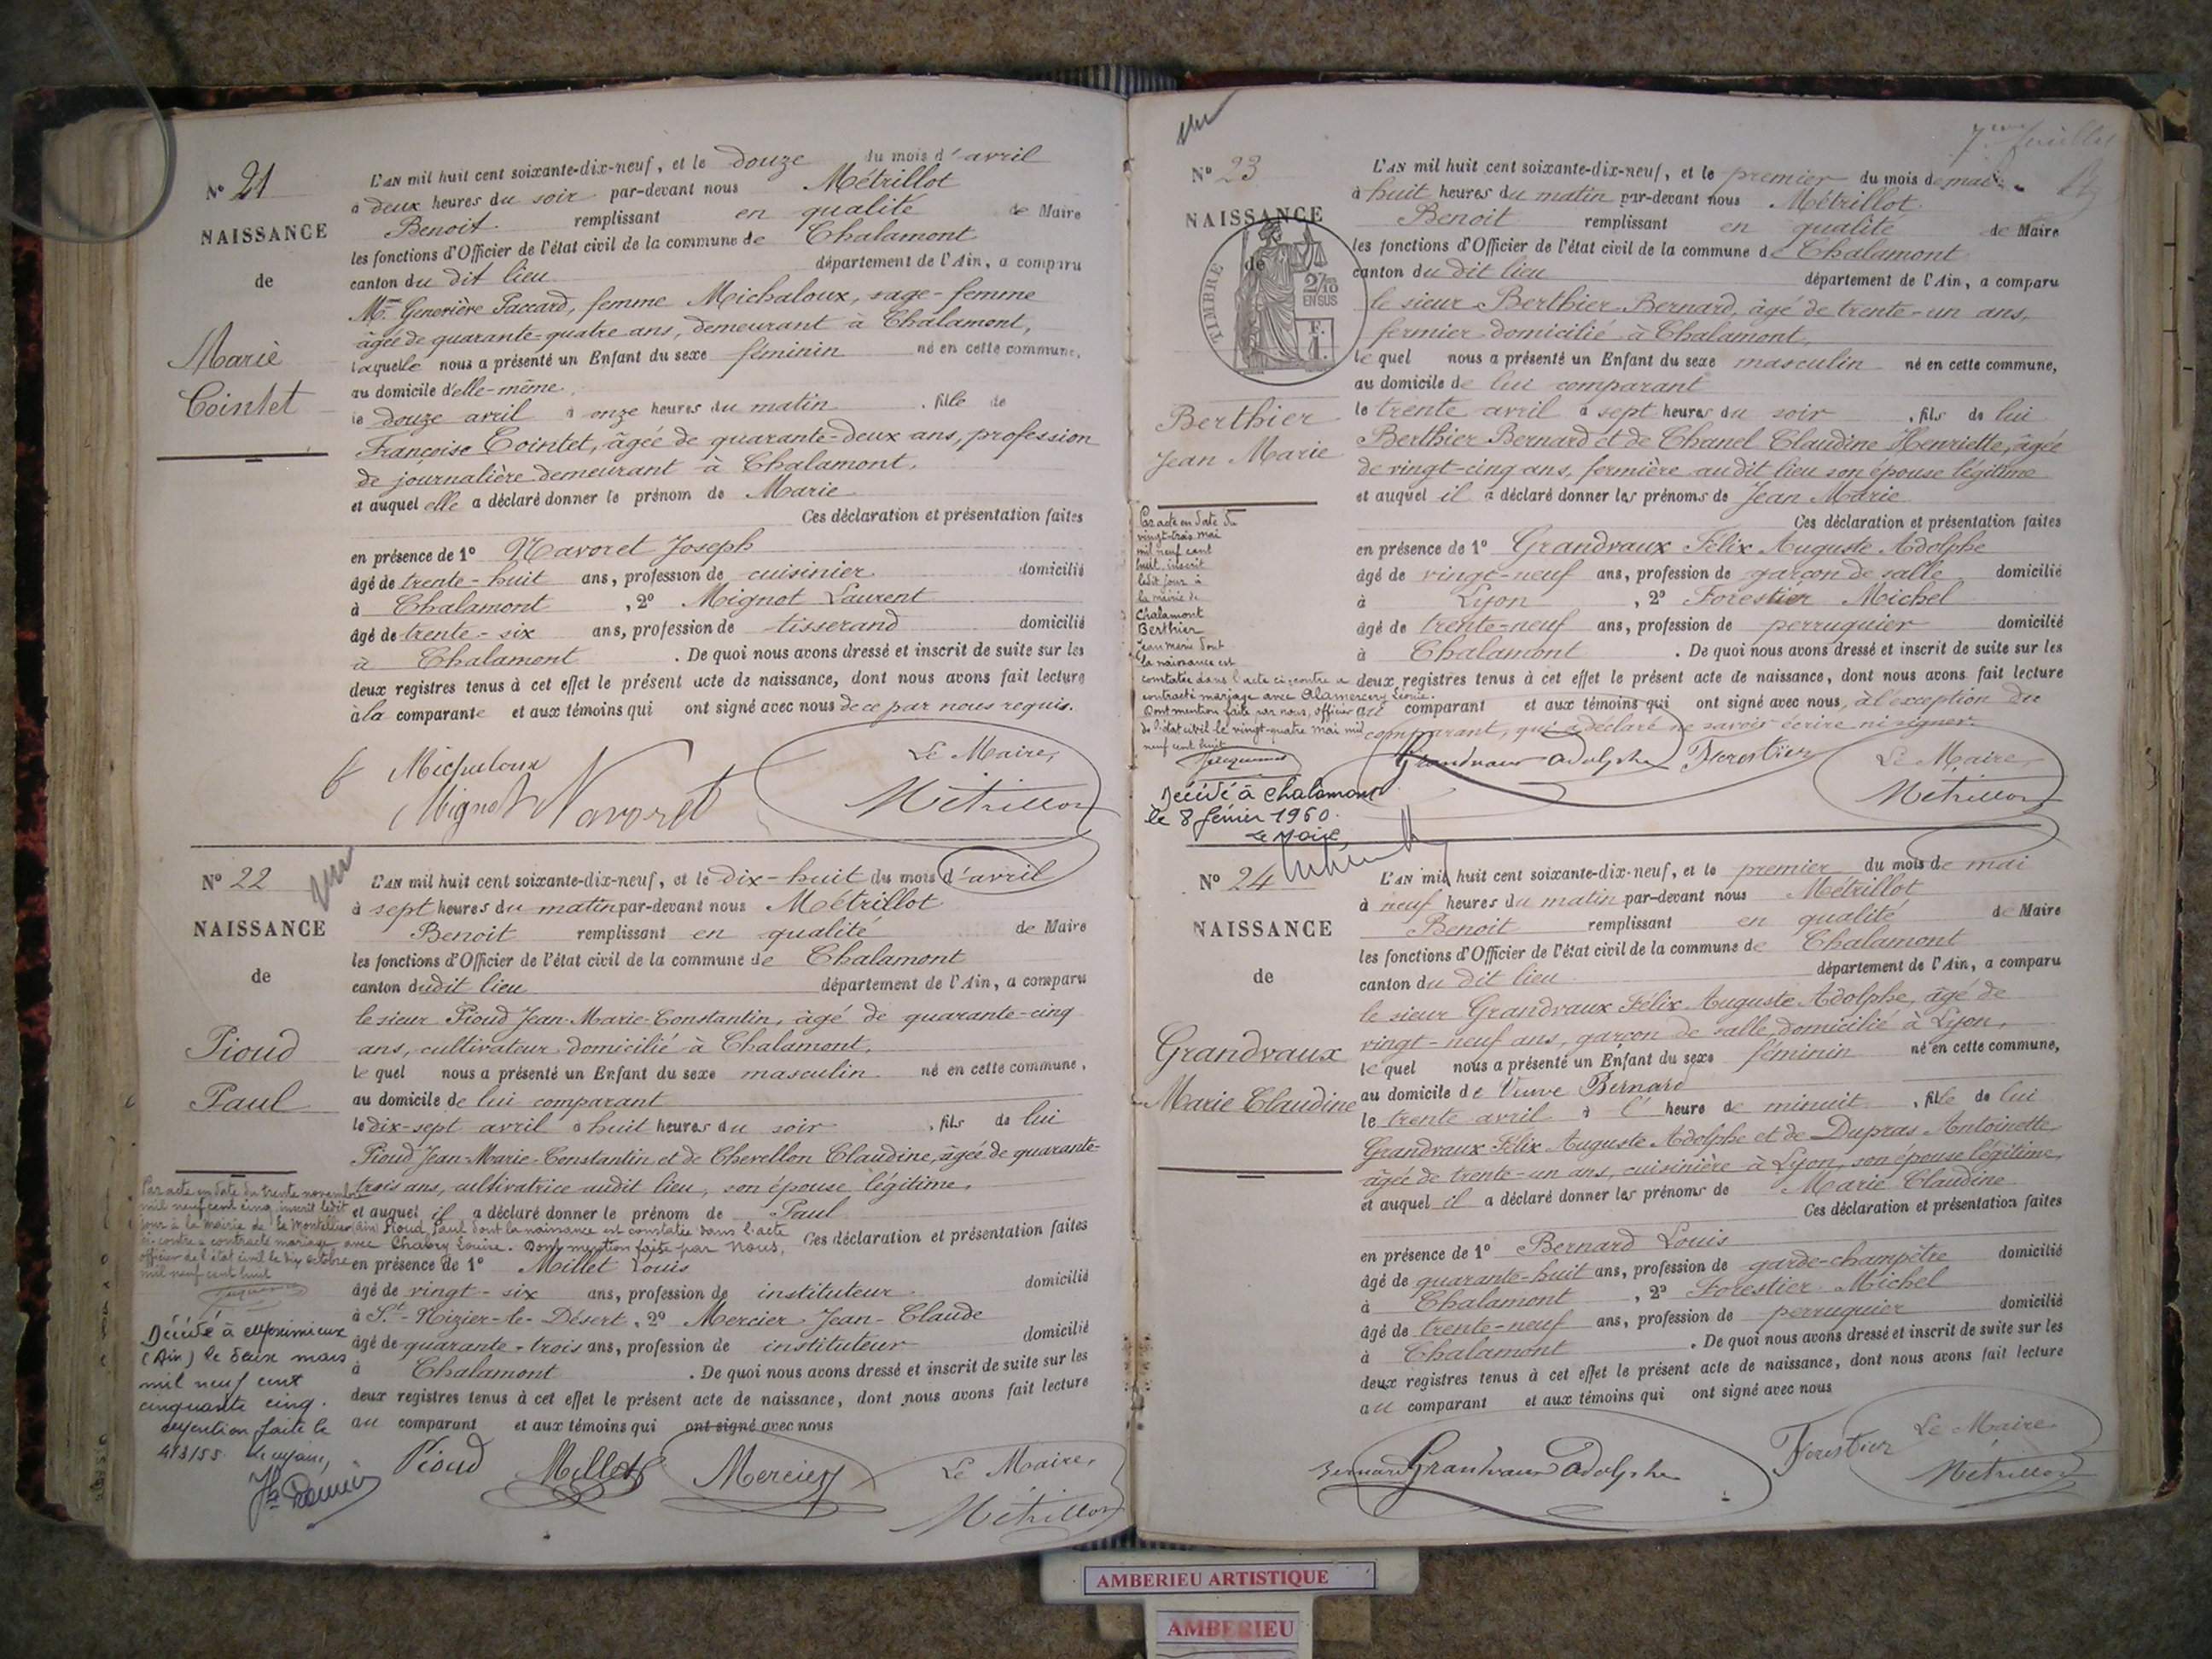 N° 21
NAISSANCE
de
Marie
Cointet
L'AN mil huit cent soixante-dix-neuf, et le douze du mois d'avril
à deux heures du soir par-devant nous Métrillot
Benoit remplissant en qualité de Maire
les fonctions d'Officier de l'état civil de la commune de Chalamont
canton du dit lieu département de l'Ain, a comparu
Me Geneviève Paccard, femme Michaloux, sage-femme
âgée de quarante-quatre ans, demeurant à Chalamont,
laquelle nous a présenté un Enfant du sexe féminin né en cette commune,
au domicile d'elle-même
le douze avril à onze heures du matin , fille de
Françoise Cointet, âgée de quarante-deux ans, profession
de journalière demeurant à Chalamont,
et auquel elle a déclaré donner le prénom de Marie
Ces déclaration et présentation faites
en présence de 1° Navoret Joseph
âgé de trente-huit ans, profession de cuisinier domicilié
à Chalamont , 2° Mignot Laurent
âgé de trente-six ans, profession de tisserand domicilié
à Chalamont . De quoi nous avons dressé et inscrit de suite sur les
deux registres tenus à cet effet le présent acte de naissance, dont nous avons fait lecture
à la comparante et aux témoins qui ont signé avec nous de ce par nous requis.
f Michaloux
Mignot Navoret
Le Maire,
Métrillot
N° 22
NAISSANCE
de
Pioud
Paul
L'AN mil huit cent soixante-dix-neuf, et le dix-huit du mois d'avril
à sept heures du matin par-devant nous Métrillot
Benoit remplissant en qualité de Maire
les fonctions d'Officier de l'état civil de la commune de Chalamont
canton dudit lieu département de l'Ain, a comparu
le sieur Pioud Jean-Marie-Constantin, âgé de quarante-cinq
ans, cultivateur domicilié à Chalamont,
le quel nous a présenté un Enfant du sexe masculin né en cette commune,
au domicile de lui comparant
le dix-sept avril à huit heures du soir , fils de lui
Pioud Jean-Marie-Constantin et de Chevellon Claudine, âgée de quarante-
trois ans, cultivatrice audit lieu, son épouse légitime,
et auquel il a déclaré donner le prénom de Paul
Ces déclaration et présentation faites
en présence de 1° Millet Louis
âgé de vingt-six ans, profession de instituteur domicilié
à St-Nizier-le-Désert, 2° Mercier Jean-Claude
âgé de quarante-trois ans, profession de instituteur domicilié
à Chalamont . De quoi nous avons dressé et inscrit de suite sur les
deux registres tenus à cet effet le présent acte de naissance, dont nous avons fait lecture
au comparant et aux témoins qui ont signé avec nous
Pioud Millet Mercier
Le Maire,
Métrillot
Par acte en date du trente novembre
mil neuf cent cinq inscrit ledit
jour à la mairie de Le Montellier (Ain) Pioud Paul dont la naissance est constatée dans l'acte
ci-contre a contracté mariage avec Chabry Louise. Dont mention faite par Nous,
officier de l'état civil le dix octobre
mil neuf cent huit
Décédé à Meximieux
(Ain) le deux mars
mil neuf cent
cinquante cinq.
Mention faite le
4/3/55 Le Maire,
7me feuillet
N° 23
NAISSANCE
de
TIMBRE
2/10
EN SUS
Berthier
Jean Marie
L'AN mil huit cent soixante-dix-neuf, et le premier du mois de mai
à huit heures du matin par-devant nous Métrillot
Benoit remplissant en qualité de Maire
les fonctions d'Officier de l'état civil de la commune de Chalamont
canton du dit lieu département de l'Ain, a comparu
le sieur Berthier Bernard, âgé de trente-un ans,
fermier domicilié à Chalamont,
le quel nous a présenté un Enfant du sexe masculin né en cette commune,
au domicile de lui comparant
le trente avril à sept heures du soir , fils de lui
Berthier Bernard et de Chanel Claudine Henriette, âgée
de vingt-cinq ans, fermière audit lieu son épouse légitime
et auquel il a déclaré donner les prénoms de Jean Marie
Ces déclaration et présentation faites
en présence de 1° Grandvaux Félix Auguste Adolphe
âgé de vingt-neuf ans, profession de garçon de salle domicilié
à Lyon , 2° Forestier Michel
âgé de trente-neuf ans, profession de perruquier domicilié
à Chalamont . De quoi nous avons dressé et inscrit de suite sur les
deux registres tenus à cet effet le présent acte de naissance, dont nous avons fait lecture
au comparant et aux témoins qui ont signé avec nous, à l'exception du
comparant, qui a déclaré ne savoir écrire ni signer
Grandvaux Adolphe Forestier
Le Maire,
Métrillot
Par acte en date du
vingt-trois mai
mil neuf cent
huit, inscrit
ledit jour à
la mairie de
Chalamont
Berthier
Jean Marie dont
la naissance est
constatée dans l'acte ci-contre a
contracté mariage avec Alamercery Léonie.
Dont mention faite par nous, officier
de l'état civil le vingt-quatre mai mil
neuf cent huit
Décédé à Chalamont
le 8 février 1960.
Le Maire
N° 24
NAISSANCE
de
Grandvaux
Marie Claudine
L'AN mil huit cent soixante-dix-neuf, et le premier du mois de mai
à neuf heures du matin par-devant nous Métrillot
Benoit remplissant en qualité de Maire
les fonctions d'Officier de l'état civil de la commune de Chalamont
canton du dit lieu département de l'Ain, a comparu
le sieur Grandvaux Félix Auguste Adolphe, âgé de
vingt-neuf ans, garçon de salle, domicilié à Lyon,
le quel nous a présenté un Enfant du sexe féminin né en cette commune,
au domicile de Veuve Bernard
le trente avril à l' heure de minuit , fille de lui
Grandvaux Félix Auguste Adolphe et de Dupras Antoinette
âgée de trente-un ans, cuisinière à Lyon, son épouse légitime,
et auquel il a déclaré donner les prénoms de Marie Claudine
Ces déclaration et présentation faites
en présence de 1° Bernard Louis
âgé de quarante-huit ans, profession de garde-champêtre domicilié
à Chalamont , 2° Forestier Michel
âgé de trente-neuf ans, profession de perruquier domicilié
à Chalamont . De quoi nous avons dressé et inscrit de suite sur les
deux registres tenus à cet effet le présent acte de naissance, dont nous avons fait lecture
au comparant et aux témoins qui ont signé avec nous
Bernard Grandvaux Adolphe Forestier
Le Maire
Métrillot
AMBERIEU ARTISTIQUE
AMBERIEU